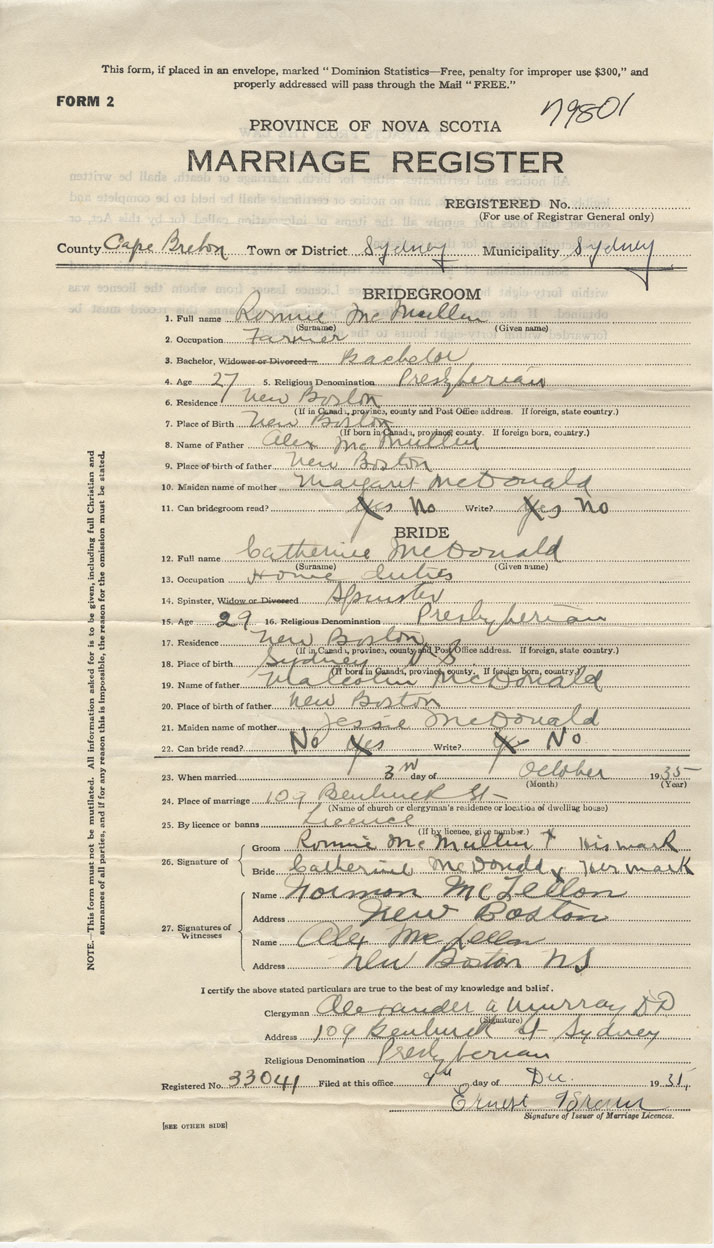 This form, if placed in an envelope, marked "Dominion Statistics—Free, penalty for improper use $300," and
properly addressed will pass through the Mail "FREE."
FORM 2
79801
PROVINCE OF NOVA SCOTIA
MARRIAGE REGISTER
REGISTERED No.
(For use of Registrar General only)
County Cape Breton Town or District Sydney Municipality Sydney
BRIDEGROOM
1. Full name Ronnie McMullin
(Surname) (Given name)
2. Occupation Farmer
3. Bachelor, Widower or Divorced Bachelor
4. Age 27 5. Religious Denomination Presbyterian
6. Residence New Boston
(If in Canada, province, county and Post Office address. If foreign, state country.)
7. Place of Birth New Boston
(If born in Canada, province, county. If foreign born, country.)
8. Name of Father Alex McMullin
9. Place of birth of father New Boston
10. Maiden name of mother Margaret McDonald
11. Can bridegroom read? Yes No Write? Yes No
BRIDE
12. Full name Catherine McDonald
(Surname) (Given name)
13. Occupation Home duties
14. Spinster, Widow or Divorced Spinster
15. Age 29 16. Religious Denomination Presbyterian
17. Residence New Boston
(If in Canada, province, county and Post Office address. If foreign, state country.)
18. Place of birth Sydney N S
(If born in Canada, province, county. If foreign born, country.)
19. Name of father Malcolm McDonald
20. Place of birth of father New Boston
21. Maiden name of mother Jessie McDonald
22. Can bride read? No Yes Write? No
23. When married 3rd day of October 1935
(Month) (Year)
24. Place of marriage 109 St
(Name of church or clergyman's residence or location of dwelling house)
25. By licence or banns Licence
(If by licence, give number.)
26. Signature of
Groom Ronnie McMullin X His mark
Bride Catherine McDonald X Her mark
27. Signatures of Witnesses
Name Norman McLellon
Address New Boston
Name Alex McLellon
Address New Boston NS
I certify the above stated particulars are true to the best of my knowledge and belief.
Clergyman Alexander A Murray DD
(Signature)
Address 109 St Sydney
Religious Denomination Presbyterian
Registered No. 33041 Filed at this office day of Dec. 1935
Ernest
Signature of Issuer of Marriage Licences.
[SEE OTHER SIDE]
NOTE.—This form must not be mutilated. All information asked for is to be given, including full Christian and
surnames of all parties, and if for any reason this is impossible, the reason for the omission must be stated.